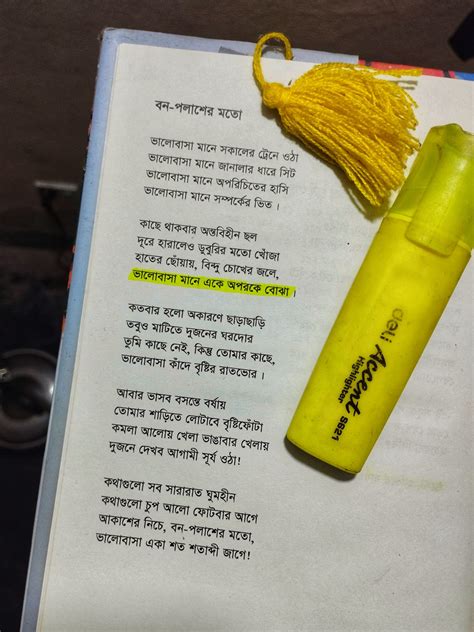 বন-পলাশের মতো
ভালোবাসা মানে সকালের ট্রেনে ওঠা
ভালোবাসা মানে জানালার ধারে সিট
ভালোবাসা মানে অপরিচিতের হাসি
ভালোবাসা মানে সম্পর্কের ভিত ।
কাছে থাকবার অন্তবিহীন ছল
দূরে হারালেও ডুবুরির মতো খোঁজা
হাতের ছোঁয়ায়, বিন্দু চোখের জলে,
ভালোবাসা মানে একে অপরকে বোঝা ।
কতবার হলো অকারণে ছাড়াছাড়ি
তবুও মাটিতে দুজনের ঘরদোর
তুমি কাছে নেই, কিন্তু তোমার কাছে,
ভালোবাসা কাঁদে বৃষ্টির রাতভোর ।
আবার ভাসব বসন্তে বর্ষায়
তোমার শাড়িতে লোটাবে বৃষ্টিফোঁটা
কমলা আলোয় খেলা ভাঙাবার খেলায়
দুজনে দেখব আগামী সূর্য ওঠা!
কথাগুলো সব সারারাত ঘুমহীন
কথাগুলো চুপ আলো ফোটবার আগে
আকাশের নিচে, বন-পলাশের মতো,
ভালোবাসা একা শত শতাব্দী জাগে!
deli Accent
Highlighter S621